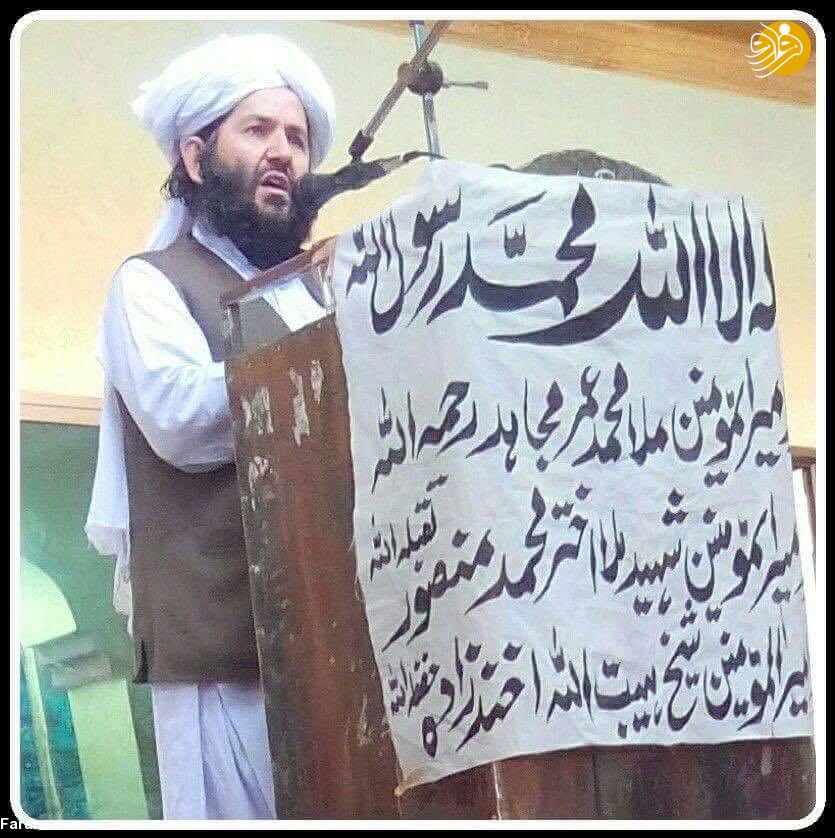 فرارو
له الا الله محمد رسول الله
میرالمؤمنین ملا محمد عمر مجاهد رحمه الله
میرالمؤمنین شهید ملا اختر محمد منصور تقبله الله
میرالمؤمنین شیخ هیبت الله اخندزاده حفظه الله